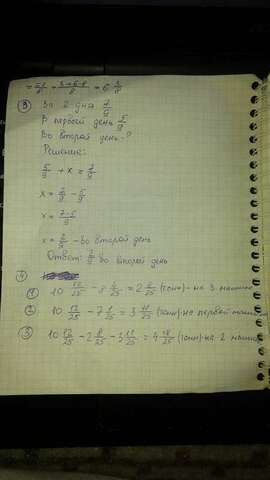 ③ За 2 дня 7/9
В первый день 5/9
Во второй день - ?
Решение:
5/9 + x = 7/9
x = 7/9 - 5/9
x = 7-5/9
x = 2/9 - во второй день
Ответ: 2/9 во второй день
④
① 10 12/25 - 8 6/25 = 2 6/25 (тонн) - на 3 машине
② 10 12/25 - 7 1/25 = 3 11/25 (тонн) - на первой машине
③ 10 12/25 - 2 - 3 11/25 = 4 (тонн) на 2 машине